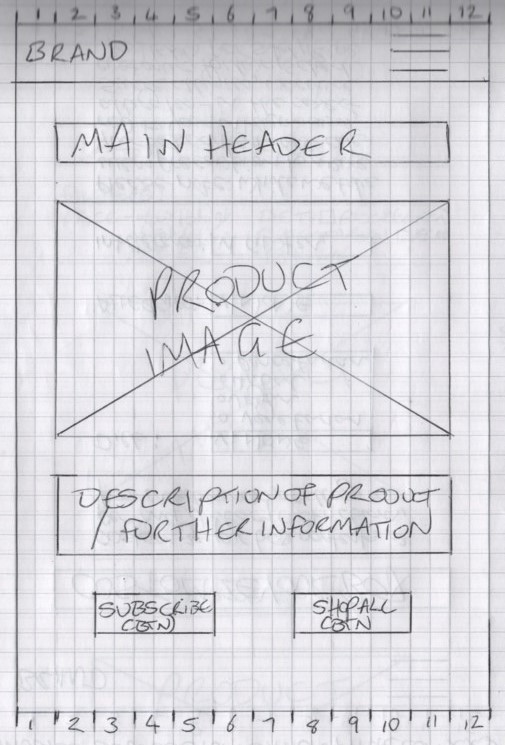 1 2 3 4 5 6 7 8 9 10 11 12
BRAND
MAIN HEADER
PRODUCT
IMAGE
DESCRIPTION OF PRODUCT
/ FURTHER INFORMATION
SUBSCRIBE
(BTN)
SHOP ALL
(BTN
1 2 3 4 5 6 7 8 9 10 11 12